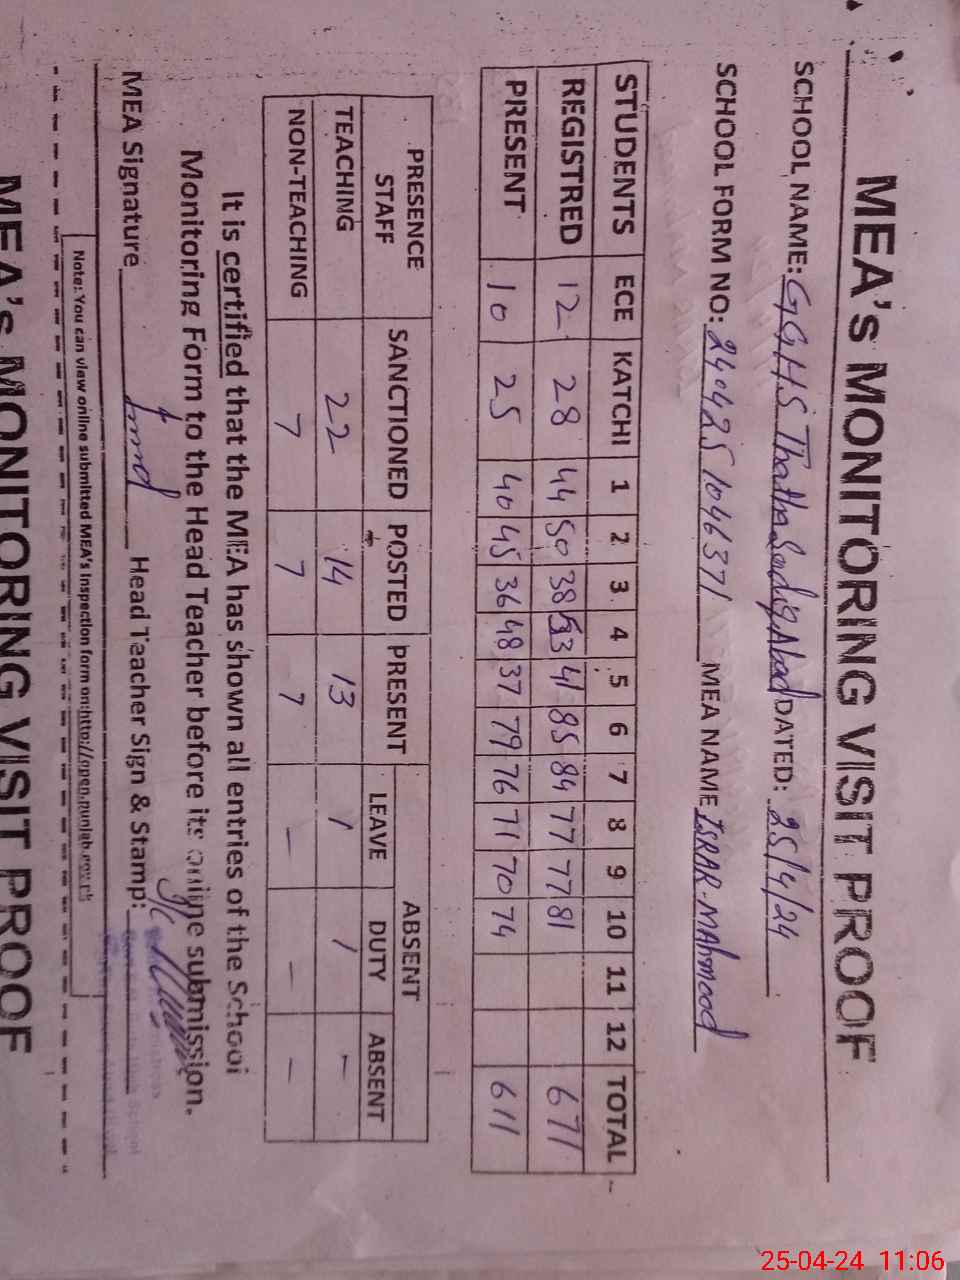 MEA's MONITORING VISIT PROOF
SCHOOL NAME: GGHS Thatha Sadiq Abad DATED: 25/4/24
SCHOOL FORM NO: 240425 1046371 MEA NAME ISRAR MAhmood
STUDENTS ECE KATCHI 1 2 3 4 5 6 7 8 9 10 11 12 TOTAL
REGISTRED 12 28 44 50 38 53 41 85 84 77 77 81 671
PRESENT 10 25 40 45 36 48 37 79 76 71 70 74 611
PRESENCE STAFF SANCTIONED POSTED PRESENT ABSENT
LEAVE DUTY ABSENT
TEACHING 22 14 13 1 1 -
NON-TEACHING 7 7 7 - - -
It is certified that the MEA has shown all entries of the School
Monitoring Form to the Head Teacher before its online submission.
MEA Signature Head Teacher Sign & Stamp:
Note: You can view online submitted MEA's Inspection form on: http://open.punjab.gov.pk
MEA's MONITORING VISIT PROOF
25-04-24 11:06